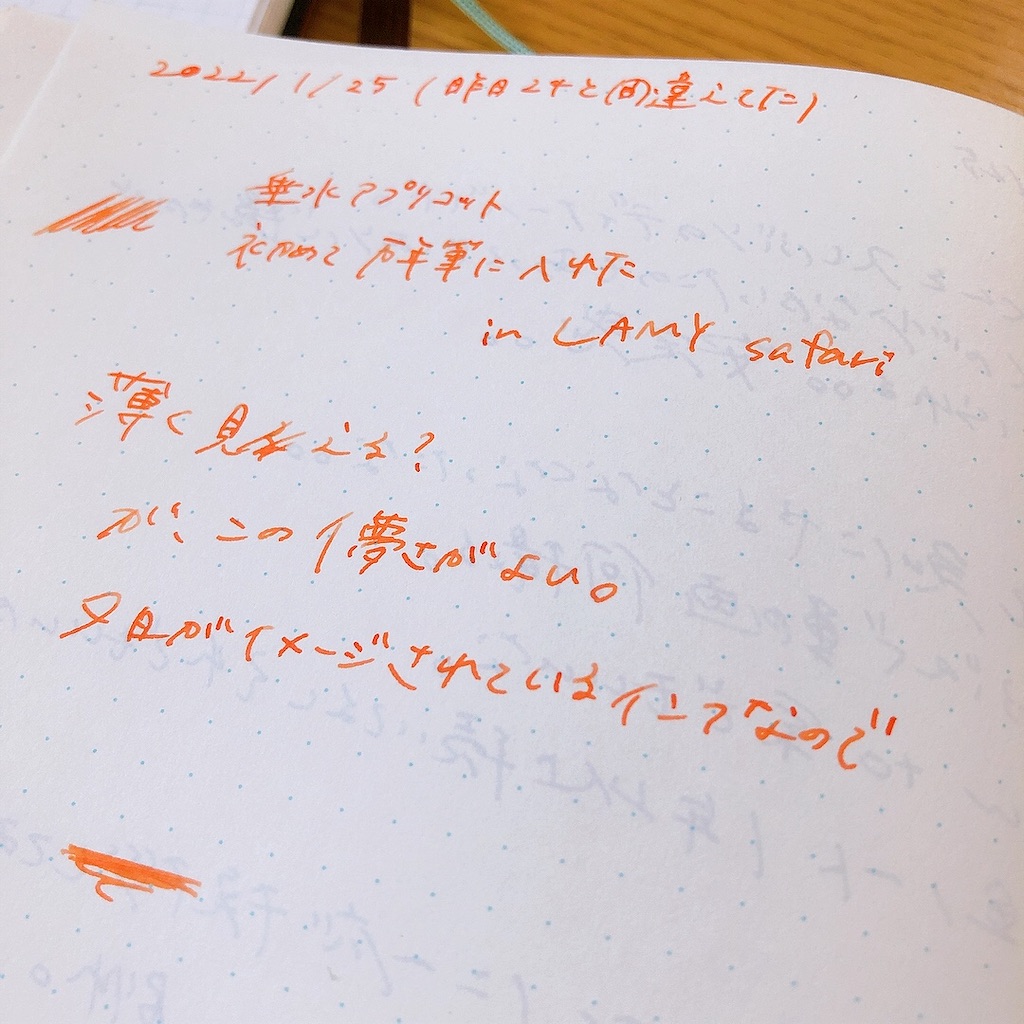 2022/1/25 (昨日24と間違えてた)
垂水アプリコット
初めて万年筆に入れた
in LAMY safari
薄く見える?
が、この儚さがよい。
夕日がイメージされているインクなので